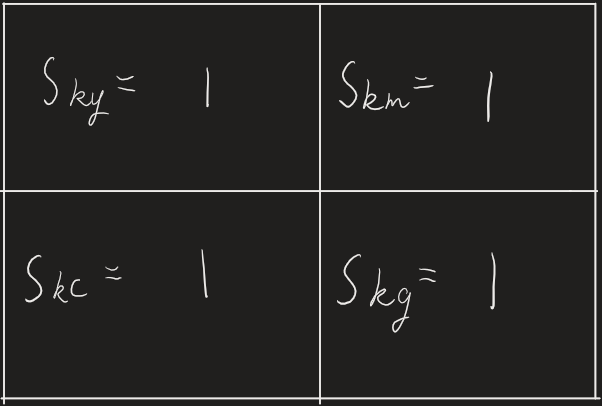 Sky = 1
Skm = 1
Skc = 1
Skg = 1